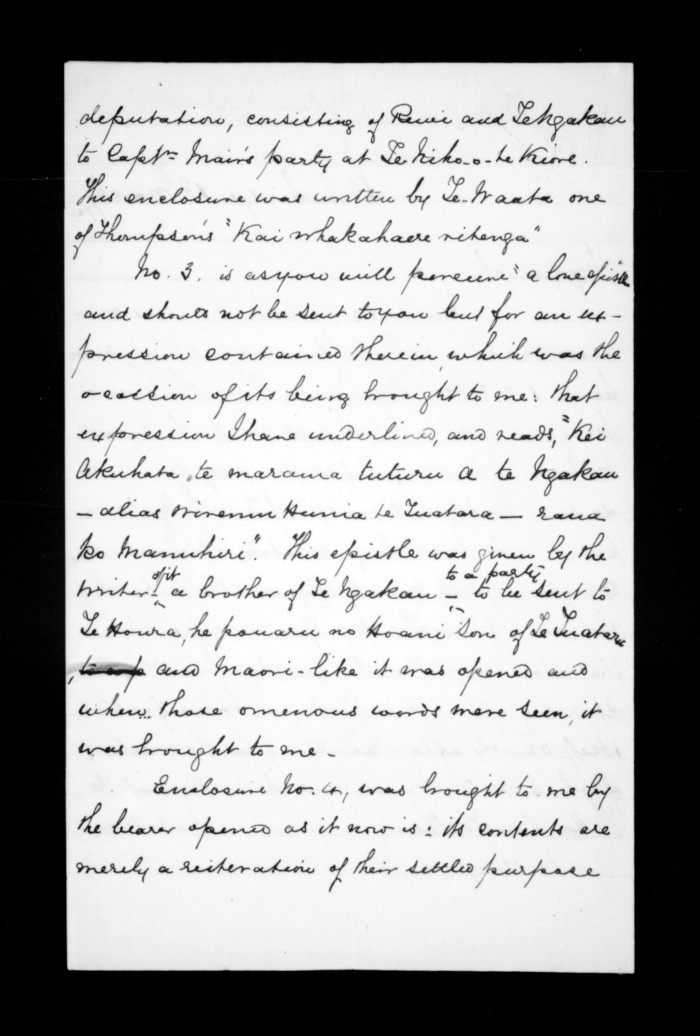 deputation, consisting of Rewi and Te Ngakau
to Captn Mair's party at Te Niho-o-te Kiore.
This enclosure was written by Te Waata one
of Thompson's "Kai whakahaere ritenga"
No. 3. is as you will perceive "a love epistle
and should not be sent to you but for an ex-
pression contained therein, which was the
ocassion of its being brought to me: that
expression I have underlined, and reads, "Kei
Akuhata te marama tuturu a te Ngakau
- alias Wiremu Hunia te Tuatara - raua
ko Manuhiri". This epistle was given by the
writer of it - a brother of Te Ngakau - to a party to be sent to
Te Houra, he pouaru no Hoani Son of Te Tuatara
and Maori-like it was opened and
when those omenous words were seen, it
was brought to me -
Enclosure No. 4, was brought to me by
the bearer opened as it now is: its contents are
merely a reiteration of their settled purpose